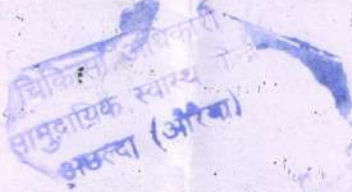 चिकित्सा अधिकारी
सामुदायिक स्वास्थ्य
अछल्दा (औरैया)